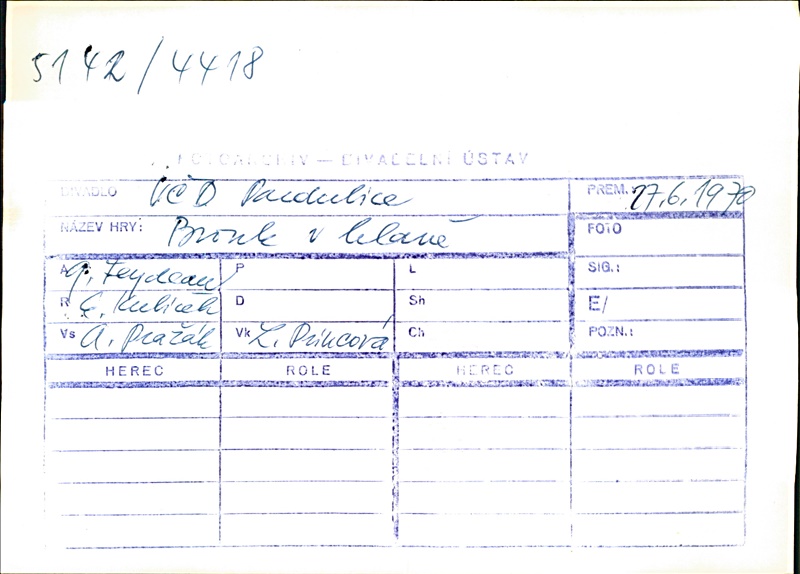 5142/4418
FOTOARCHIV — DIVADELNÍ ÚSTAV
DIVADLO VČD Pardubice PREM.: 17.6.1970
NÁZEV HRY: Brouk v hlavě FOTO
A G. Feydeau P L SIG.:
R Č. Kubíček D Sh E/
Vs A. Pražák Vk L. Princová Ch POZN.:
HEREC ROLE HEREC ROLE